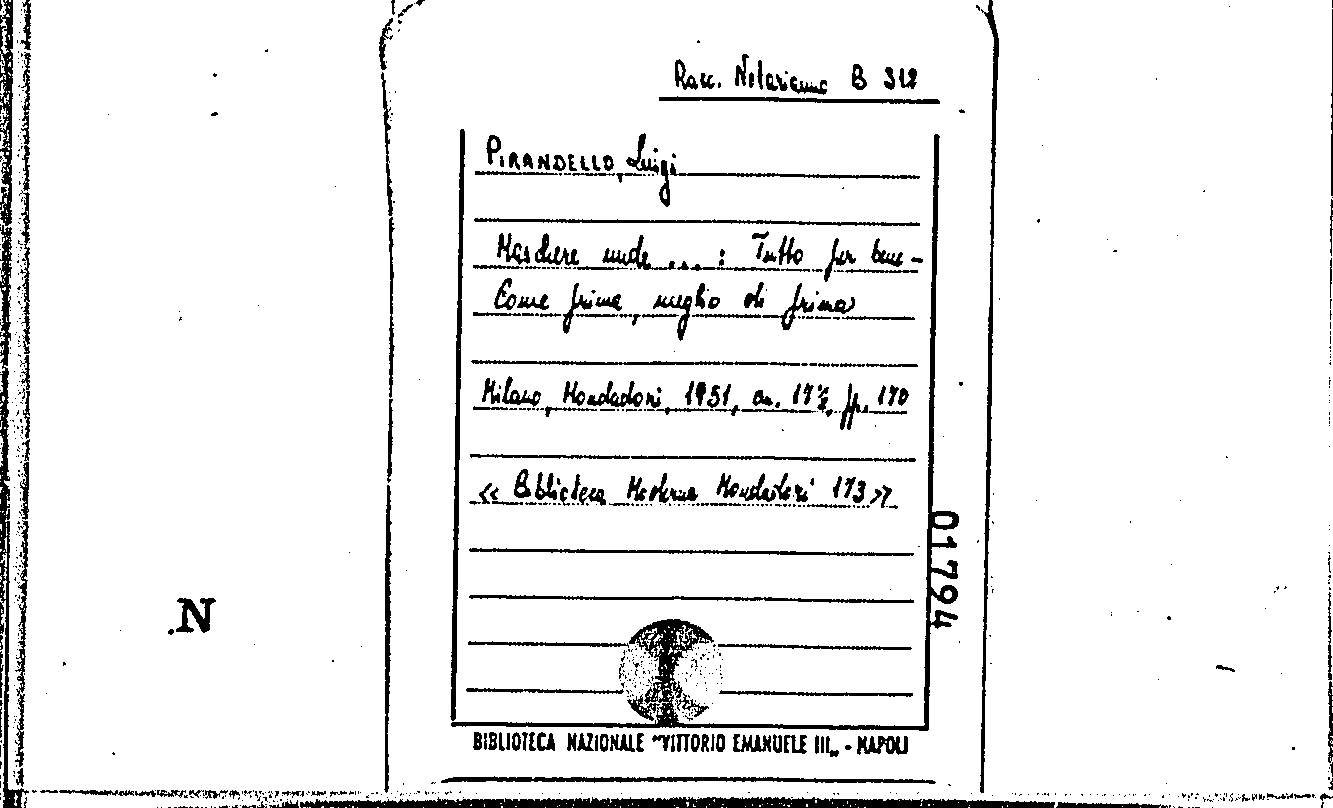 Racc. Notarianno B 312
PIRANDELLO, Luigi
Maschere nude ... : Tutto per bene -
Come prima, meglio di prima
Milano, Mondadori, 1951, cm. 17½, pp. 170
« Biblioteca Moderna Mondadori 173 »
01794
.N
BIBLIOTECA NAZIONALE "VITTORIO EMANUELE III„ - NAPOLI